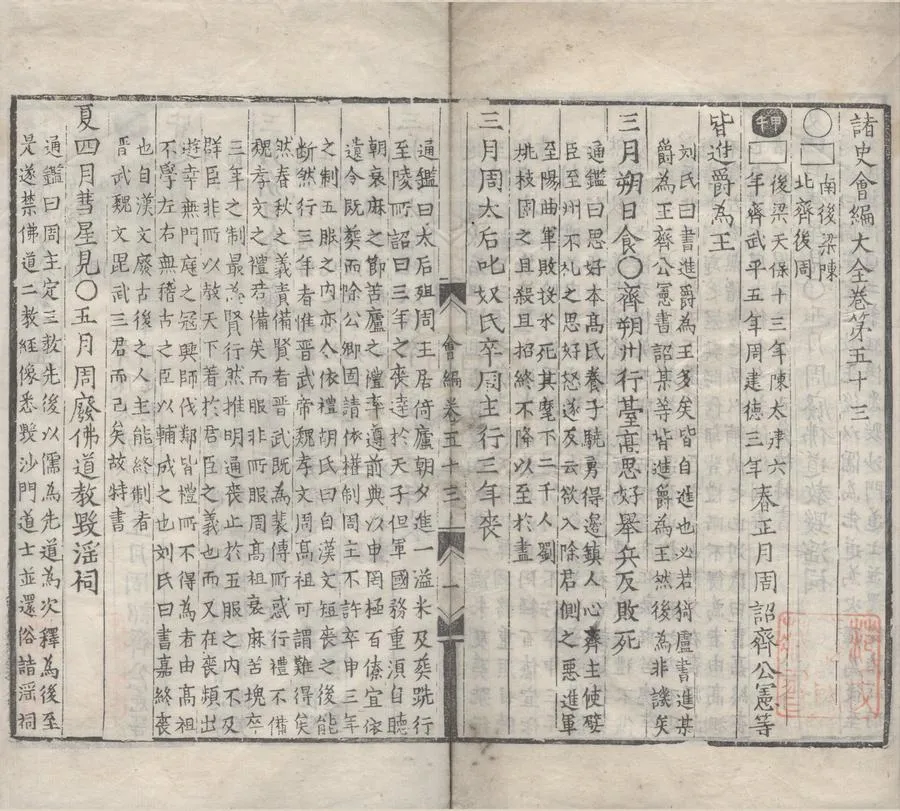 諸史會編大全卷第五十三
南後梁陳
北齊後周
甲午
後梁天保十三年陳太建六
年齊武平五年周建德三年
春正月周詔齊公憲等
皆進爵為王
劉氏曰書進爵為王多矣皆自進也必若狥盧書進某
爵為王齊公憲書詔某等皆進爵為王然後為非譏矣
三月朔日食○齊朔州行臺高思好舉兵反敗死
通鑑曰思好本高氏養子驍勇得邊鎮人心齊主使嬖
臣至州不礼之思好怒遂反云欲入除君側之惡進軍
至陽曲軍敗投水死其麾下二千人劉
桃枝圍之且殺且招終不降以至於盡
三月周太后叱奴氏卒周主行三年喪
會編卷五十三
一
通鑑曰太后殂周主居倚廬朝夕進一溢米及葬跣行
至陵所詔曰三年之喪達於天子但軍國務重須自聽
朝衰麻之節苦廬之禮率遵前典以申罔極百僚宜依
遺令既葬而除公卿固請依權制周主不許卒申三年
之制五服之内亦令依禮胡氏曰自漢文短喪之後能
断然行三年者惟晋武帝魏孝文周高祖可謂難得矣
然春秋之義責備賢者晋武既為裴傅所惑行禮不備
魏孝文之禮君備矣而服非而服周高祖衰麻苦塊卒
三年之制最為賢行然推明通喪止於五服之内不及
群臣非所以教天下著於君臣之義也而又在喪頻出
遊幸無門庭之冠興師伐鄰皆禮所不得為者由高祖
不學左右無稽古之臣以輔成之也劉氏曰書嘉終喪
也自漢文廢古後之人主能終制者
晋武魏文毘武三君而已矣故特書
夏四月彗星見○五月周廢佛道教毀淫祠
通鑑曰周主定三教先後以儒為先道為次釋為後至
是遂禁佛道二教經像悉毀沙門道士並還俗諸淫祠